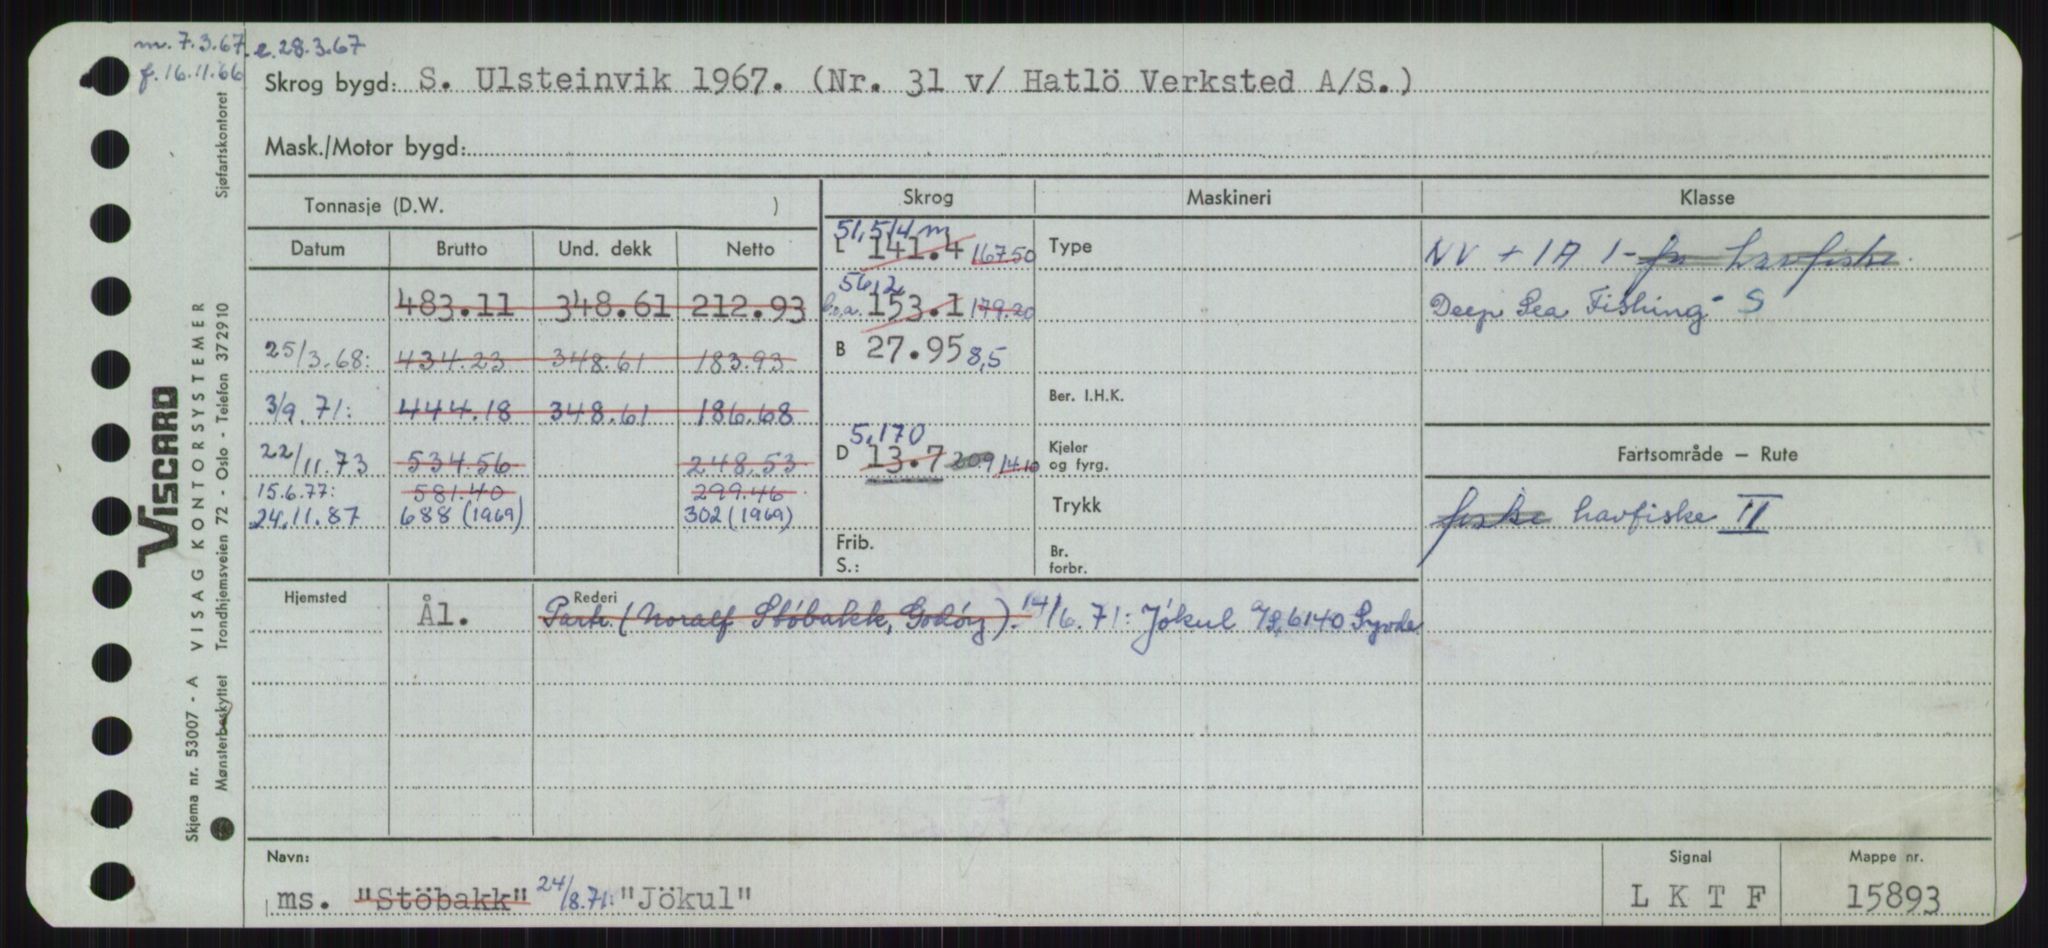 m. 7.3.67. e. 28.3.67
f. 16.11.66
Skrog bygd: S. Ulsteinvik 1967. (Nr. 31 v/ Hatlö Verksted A/S.)
Mask./Motor bygd:
Tonnasje (D.W. )
Skrog
Maskineri
Klasse
Datum Brutto Und. dekk Netto
51,514 m
L 141.4 167.50
Type
NV + 1A 1- havfiske.
483.11 348.61 212.93
56,2
b.o.a. 153.1 179.20
Deep Sea Fishing- S
25/3.68: 434.23 348.61 183.93
B 27.95 8,5
3/9.71: 444.18 348.61 186.68
Ber. I.H.K.
22/11.73 534.56 248.53
5,170
D 13.7 20.9 14.10
Kjeler
og fyrg.
Fartsområde — Rute
15.6.77: 581.40 299.46
24.11.87 688 (1969) 302 (1969)
Trykk
fiske havfiske II
Frib.
S.:
Br.
forbr.
Hjemsted Ål.
Rederi
Partr. (Noralf Stöbakk, Godöy). 14/6.71: Jökul A/S, 6140 Syvde
Navn:
ms. "Stöbakk" 24/8.71: "Jökul"
Signal
L K T F
Mappe nr.
15893
VISCARD
Skjema nr. 53007 - A VISAG KONTORSYSTEMER
Mønsterbeskyttet Trondhjemsveien 72 - Oslo - Telefon 372910 Sjøfartskontoret